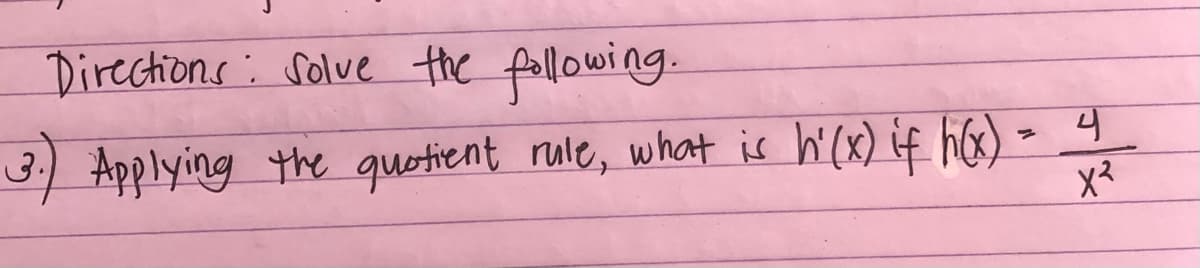 Directions: Solve the following.
3.) Applying the quotient rule, what is h'(x) if h(x) = 4/x²